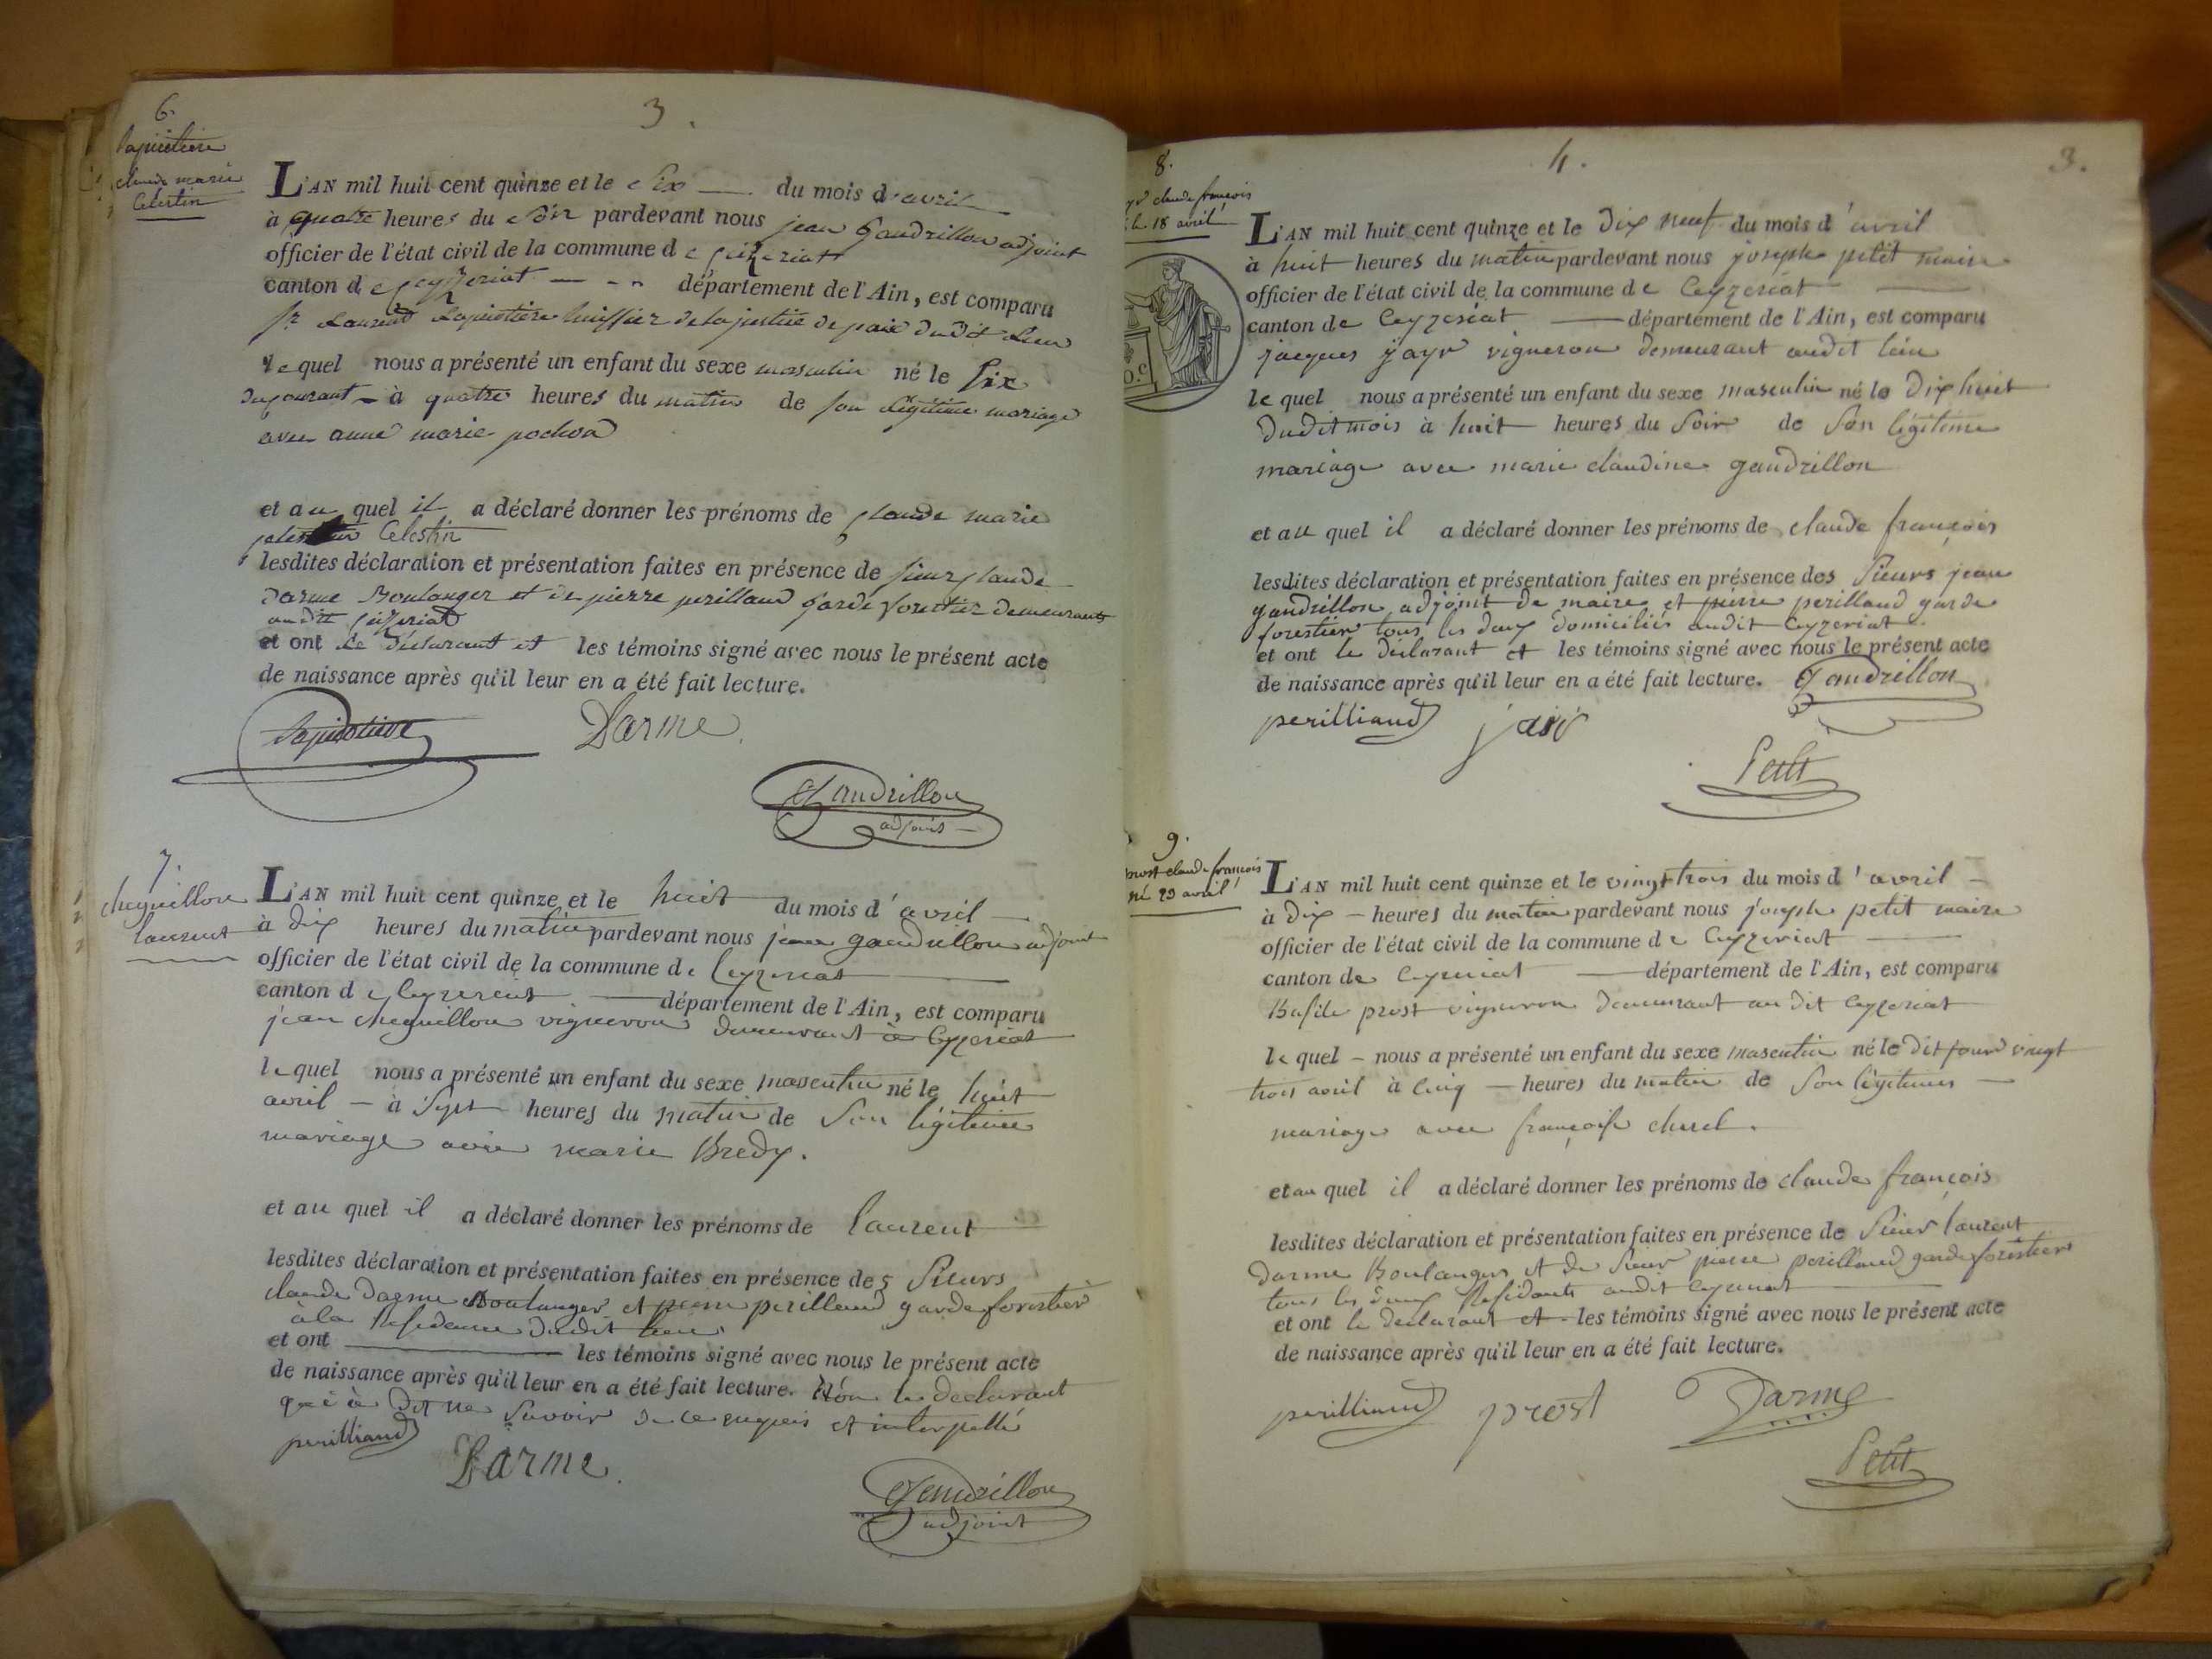 3.
6.
lapiertiere
claude marie
Celestin
L'AN mil huit cent quinze et le Six du mois d'avril
à quatre heures du soir pardevant nous jean Gandrillon adjoint
officier de l'état civil de la commune de
canton de ceyzeriat département de l'Ain, est comparu
sr Laurent huissier de la justice de paix dudit Lieu
le quel nous a présenté un enfant du sexe masculin né le Six
du courant à quatre heures du matin de son légitime mariage
avec anne marie pochon
et au quel il a déclaré donner les prénoms de claude marie
Celestin
lesdites déclaration et présentation faites en présence de sieur claude
Darme Boulanger et de pierre perilland garde forestier demeurants
audit
et ont le déclarant et les témoins signé avec nous le présent acte
de naissance après qu'il leur en a été fait lecture.
Darme
Gandrillon
adjoint
7.
cheguillon
laurent
L'AN mil huit cent quinze et le huit du mois d'avril
à dix heures du matin pardevant nous jean gandrillon adjoint
officier de l'état civil de la commune de Ceyzeriat
canton de Ceyzeriat département de l'Ain, est comparu
jean cheguillon vigneron demeurant à Ceyzeriat
le quel nous a présenté un enfant du sexe masculin né le huit
avril à Sept heures du matin de Son légitime
mariage avec marie Bredy.
et au quel il a déclaré donner les prénoms de laurent
lesdites déclaration et présentation faites en présence des Sieurs
claude Darme Boulanger et pierre perilland garde forestier
à la Residence dudit lieu
et ont les témoins signé avec nous le présent acte
de naissance après qu'il leur en a été fait lecture. Non le declarant
qui a dit ne Savoir de ce requis et interpellé
perilliand
Darme
Gandrillon
adjoint
4.
3.
8.
claude françois
18 avril
L'AN mil huit cent quinze et le Dix neuf du mois d'avril
à huit heures du matin pardevant nous joseph petit maire
officier de l'état civil de la commune de Ceyzeriat
canton de Ceyzeriat département de l'Ain, est comparu
jacques jayr vigneron demeurant audit lieu
le quel nous a présenté un enfant du sexe masculin né le Dix huit
dudit mois à huit heures du Soir de Son légitime
mariage avec marie claudine gandrillon
et au quel il a déclaré donner les prénoms de claude françois
lesdites déclaration et présentation faites en présence des Sieurs jean
gandrillon adjoint de maire et pierre perilland garde
forestier tous les deux domiciliés audit Ceyzeriat
et ont le déclarant et les témoins signé avec nous le présent acte
de naissance après qu'il leur en a été fait lecture. Gandrillon
perilliand
Petit
9.
prost claude françois
né 23 avril
L'AN mil huit cent quinze et le vingt trois du mois d'avril
à dix heures du matin pardevant nous joseph petit maire
officier de l'état civil de la commune de Ceyzeriat
canton de Ceyzeriat département de l'Ain, est comparu
Basile prost vigneron demeurant au dit Ceyzeriat
le quel nous a présenté un enfant du sexe masculin né le dit jour vingt
trois avril à cinq heures du matin de Son légitime
mariage avec françoise
et au quel il a déclaré donner les prénoms de claude françois
lesdites déclaration et présentation faites en présence de Sieur laurent
Darme Boulanger et de Sieur pierre perilland garde forestier
tous les deux Residants audit Ceyzeriat
et ont le declarant et les témoins signé avec nous le présent acte
de naissance après qu'il leur en a été fait lecture.
perilliand prost Darme
Petit